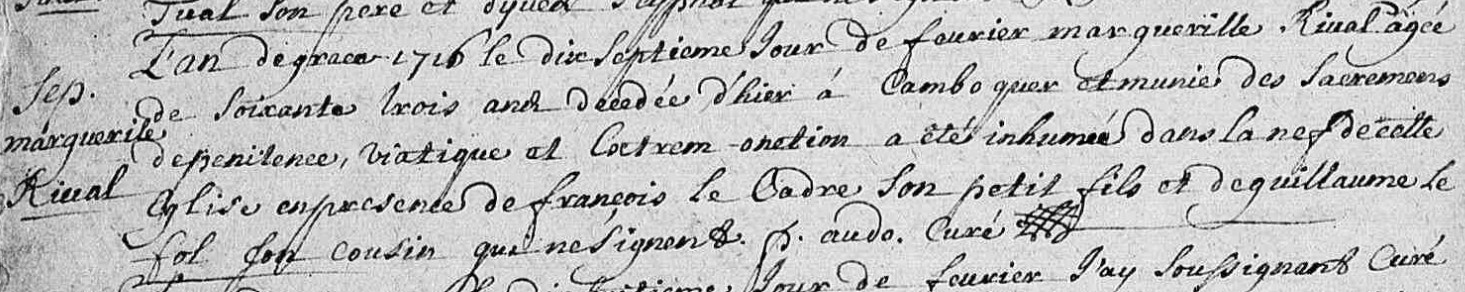 Tual son pere et
L'an de grace 1716 le dix septieme Jour de fevrier marguerille Rival agée
Sep. de soixante trois ans decedée d'hier á Camboquer et munie des Sacremens
marguerite de penitence, viatique et Extrem-onction a été inhumée dans la nef de cette
Rival Eglise en presence de françois le Cadre son petit fils et de guillaume le
fol son cousin qui ne signent. p. audo. Curé
Jour de fevrier J'ay soussignant Curé